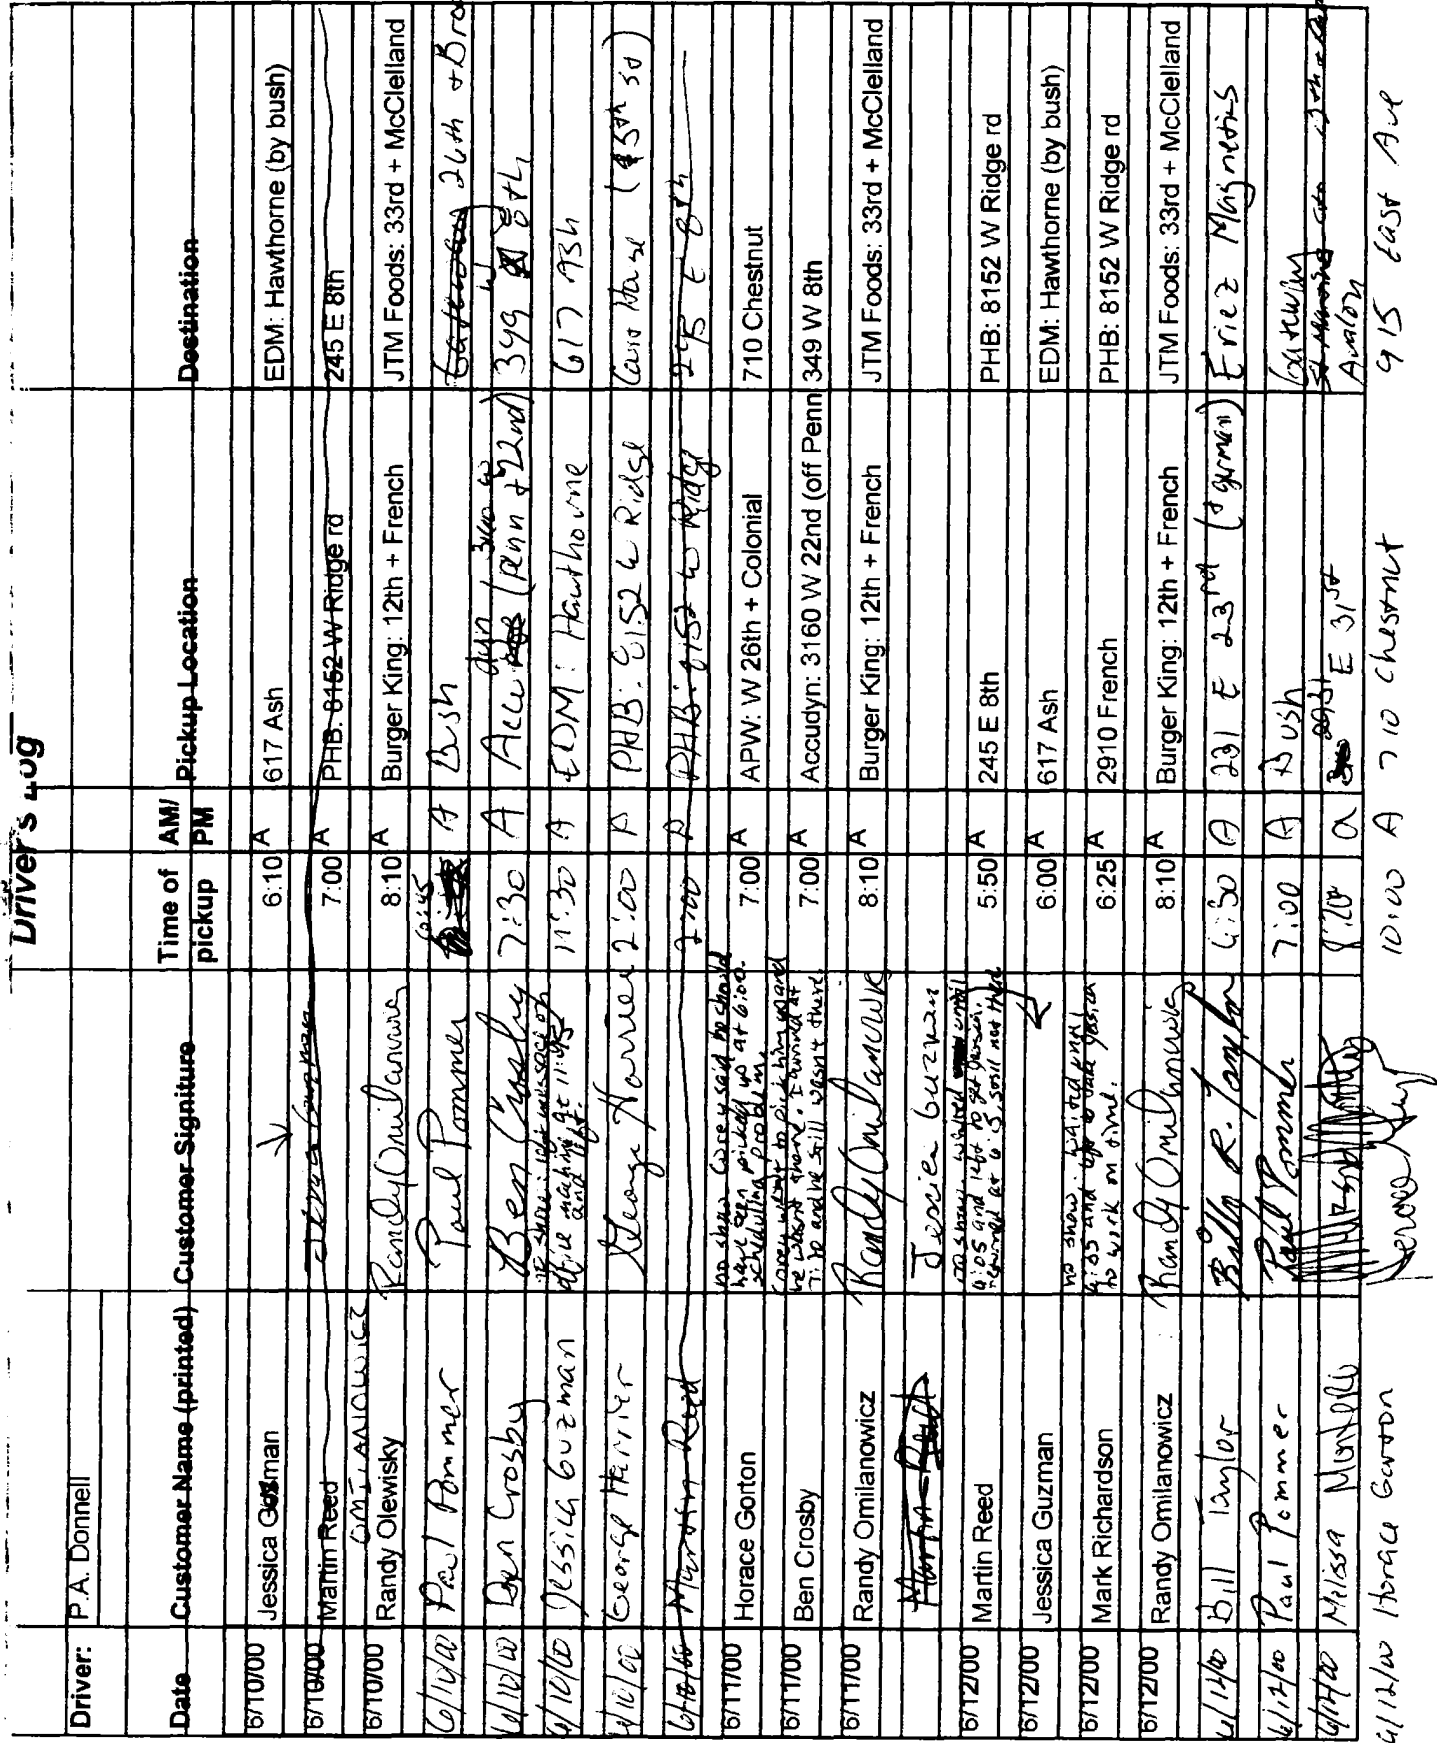 Driver's Log
Driver: P.A. Donnell
Date Customer Name (printed) Customer Signiture Time of pickup AM/PM Pickup Location Destination
6/10/00 Jessica Guzman 6:10 A 617 Ash EDM: Hawthorne (by bush)
6/10/00 Martin Reed 7:00 A PHB: 8152 W Ridge rd 245 E 8th
OMILANOWICZ
6/10/00 Randy Olewisky Randy Omilanowicz 8:10 A Burger King: 12th + French JTM Foods: 33rd + McClelland
6/10/00 Paul Pommer Paul Pommer 6:45 A Bush Gateway 26th + Bro
6/10/00 Ben Crosby Ben Crosby 7:30 A Accudyn (Penn + 22nd) 349 W 8th
6/10/00 Jessica Guzman no show: left message on office machine at 11:45 and left. 11:30 A EDM: Hawthorne 617 Ash
6/10/00 George Harrier George Harrier 2:00 P PHB: 8152 W Ridge Court House
6/10/00 Martin Reed 2:00 P PHB: 8152 W Ridge 245 E 8th
6/11/00 Horace Gorton no show Corey said he should have been picked up at 6:00. scheduling problem. 7:00 A APW: W 26th + Colonial 710 Chestnut
6/11/00 Ben Crosby Corey went to pick him up and he wasn't there. I arrived at 7:10 and he still wasn't there. 7:00 A Accudyn: 3160 W 22nd (off Penn 349 W 8th
6/11/00 Randy Omilanowicz Randy Omilanowicz 8:10 A Burger King: 12th + French JTM Foods: 33rd + McClelland
Martin Reed Jessica Guzman
6/12/00 Martin Reed no show. waited until 6:05 and left to get person. returned at 6:15, still not there 5:50 A 245 E 8th PHB: 8152 W Ridge rd
6/12/00 Jessica Guzman 6:00 A 617 Ash EDM: Hawthorne (by bush)
6/12/00 Mark Richardson no show. waited until 6:35 and left to take Jessica to work on time. 6:25 A 2910 French PHB: 8152 W Ridge rd
6/12/00 Randy Omilanowicz Randy Omilanowicz 8:10 A Burger King: 12th + French JTM Foods: 33rd + McClelland
6/12/00 Bill Taylor Billy R. Taylor 6:30 A 231 E 23rd (+ german) Eriez Magnetics
6/12/00 Paul Pommer Paul Pommer 7:00 A Bush Gateway
6/12/00 Melissa 8:20 a E 31st Avalon
6/12/00 Horace Gorton 10:00 A 710 Chestnut 915 East Ave